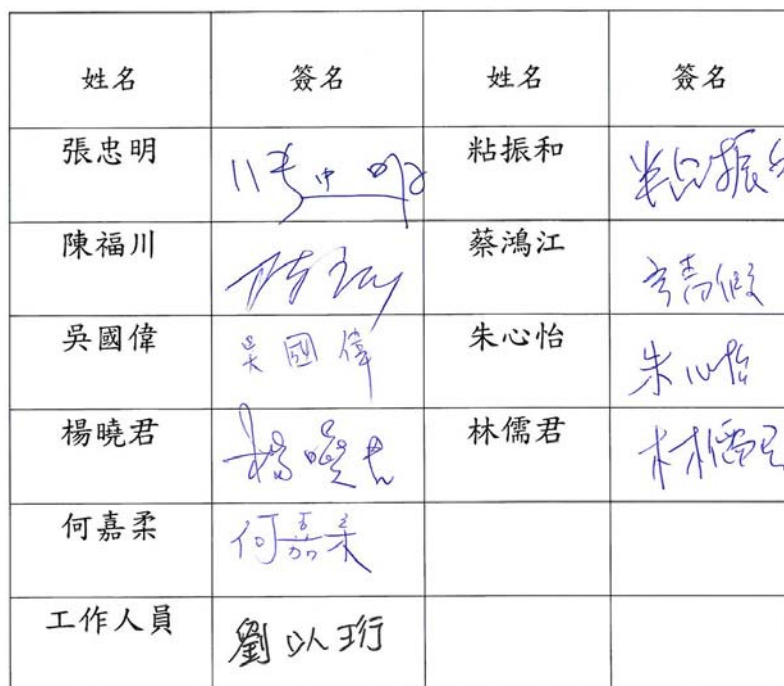 姓名 簽名 姓名 簽名
張忠明 張中明 粘振和 粘振和
陳福川 蔡鴻江 請假
吳國偉 吳國偉 朱心怡 朱心怡
楊曉君 楊曉君 林儒君 林儒君
何嘉柔 何嘉柔
工作人員 劉以珩